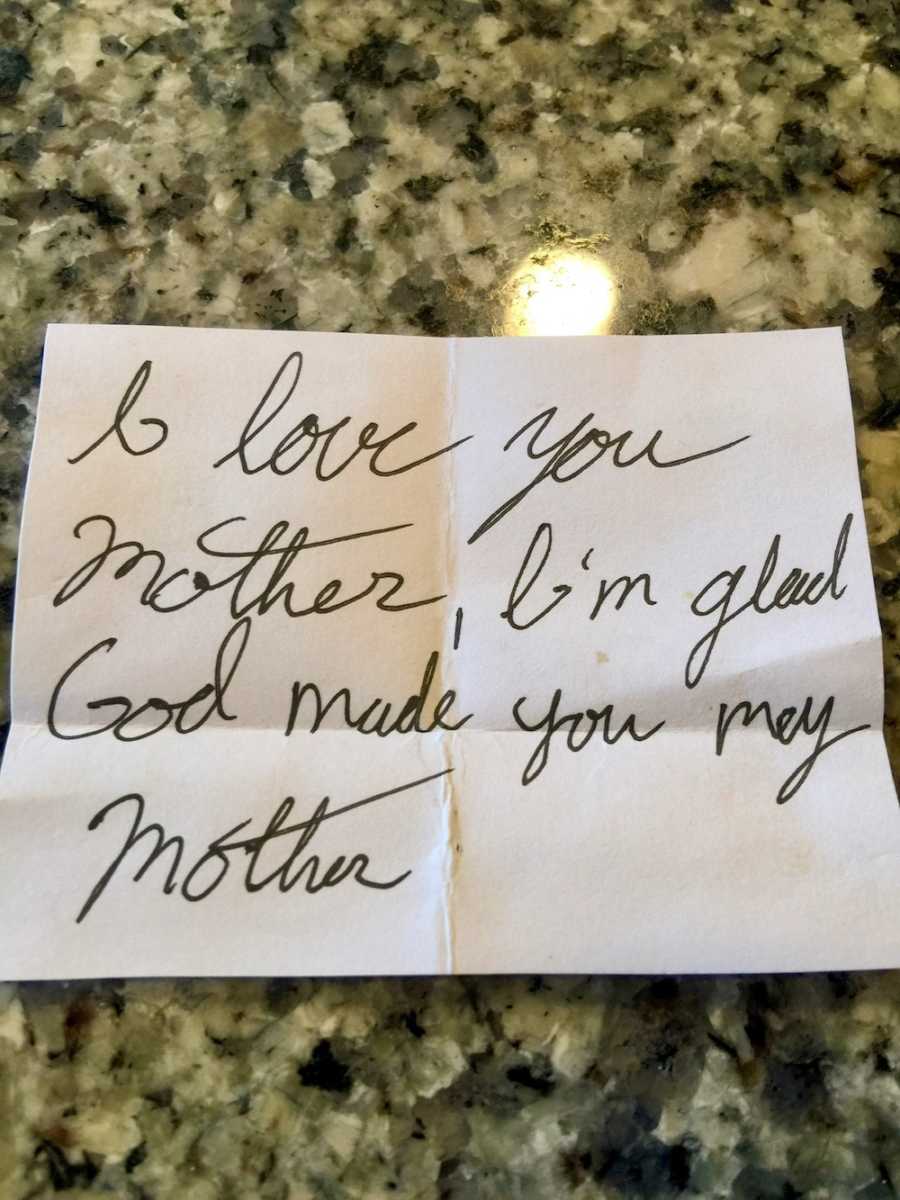 I love you
Mother, I'm glad
God made you my
Mother